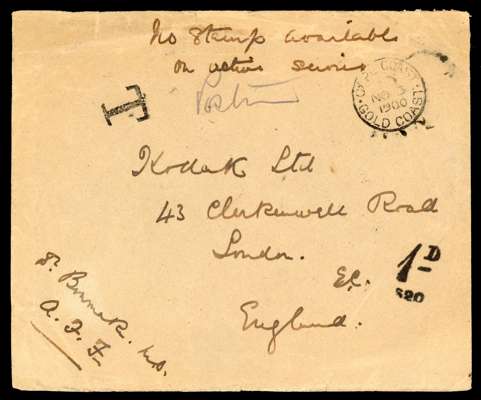 No stamp available
on active service
T
CAPE COAST
NO 3
1900
GOLD COAST
Kodak Ltd
43 Clerkenwell Road
London.
E.C.
England.
1D
S20
A. F. F.